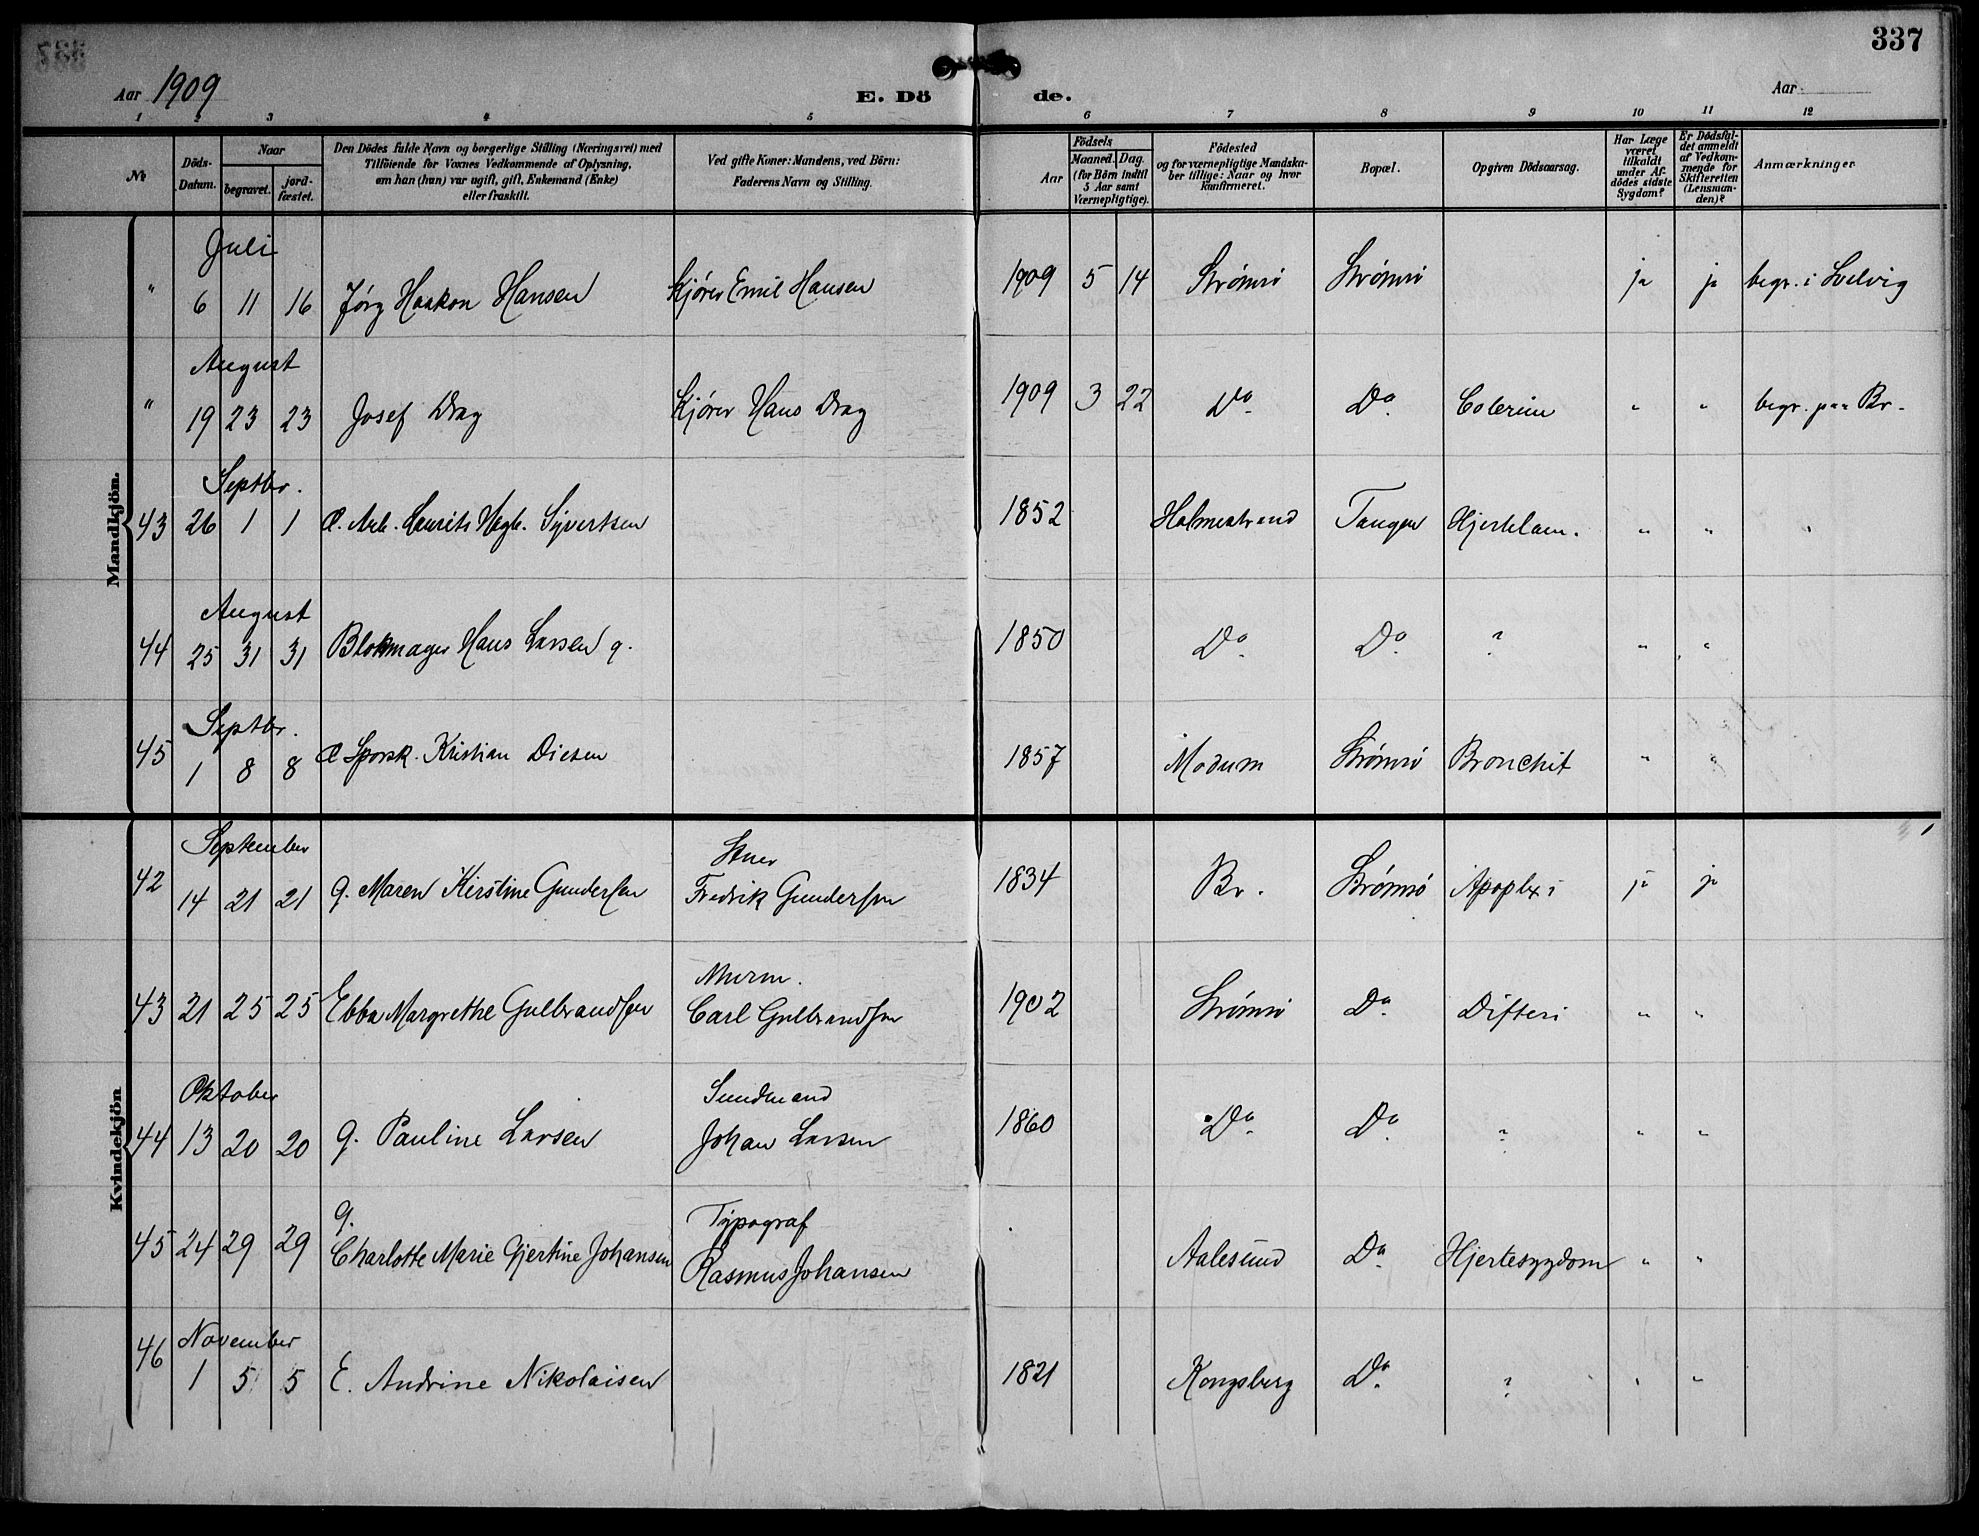 337
Aar 1909
E. Dö de.
Aar
1 2 3 4 5 6 7 8 9 10 11 12
№
Döds-Datum.
Naar
begravet.
jord-fæstet.
Den Dödes fulde Navn og borgerlige Stilling (Næringsvei) med
Tilföiende for Voxnes Vedkommende af Oplysning,
om han (hun) var ugift, gift, Enkemand (Enke)
eller fraskilt.
Ved gifte Koner: Mandens, ved Börn:
Faderens Navn og Stilling.
Aar
Födsels
Maaned. Dag.
(for Börn indtil
5 Aar samt
Værnepligtige).
Födested
og for værnepligtige Mandska-
ber tillige: Naar og hvor
konfirmeret.
Bopæl.
Opgiven Dödsaarsag.
Har Læge
været
tilkaldt
under Af-
dödes sidste
Sygdom?
Er Dödsfal-
det anmeldt
af Vedkom-
mende for
Skifteretten
(Lensman-
den)?
Anmærkninger
Mandkjön.
Juli
" 6 11 16 Jörg Haakon Hansen Kjörer Emil Hansen 1909 5 14 Strömsö Strömsö ja ja begr. i Svelvig
August
" 19 23 23 Josef Drag Kjörer Hans Drag 1909 3 22 Do Do Colerine " " begr. paa Br.
Septbr.
43 26 1 1 Laurits Syvertsen 1852 Holmestrand Tangen " " "
August
44 25 31 31 Blokmager Hans Larsen g. 1850 Do Do ? " "
Septbr.
45 1 8 8 Kristian Diesen 1857 Modum Strömsö Bronchit " "
Kvindekjön
September
42 14 21 21 g. Maren Kirstine Gundersen Fredrik Gundersen 1834 Br. Strömsö Apoplexi ja ja
Murm.
43 21 25 25 Ebba Margrethe Gulbrandsen Carl Gulbrandsen 1902 Strömsö Do Difteri " "
Oktober Sundmand
44 13 20 20 g. Pauline Larsen Johan Larsen 1860 Do Do ? " "
g. Typograf
45 24 29 29 Charlotte Marie Gjertine Johansen Rasmus Johansen Aalesund Do Hjertesygdom " "
November
46 1 5 5 E. Andrine Nikolaisen 1821 Kongsberg Do ? " "